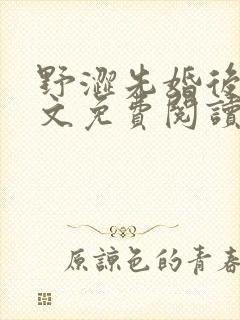 野澀先婚後
文免費閱讀
原諒色的青春